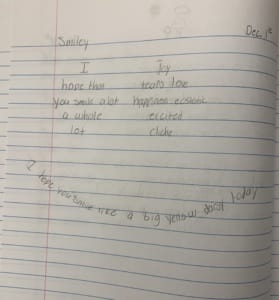 Dec. 1st
Smiley
I Joy
hope that tears love
you smile a lot happiness ecstatic
a whole excited
lot cliche
I hope you smile like a big yellow today